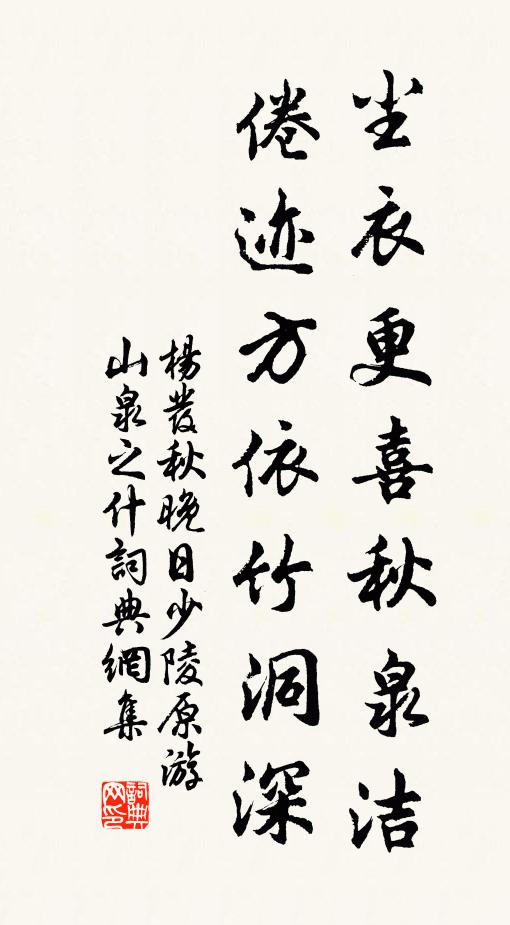 尘衣更喜秋泉洁
倦迹方依竹洞深
楊發秋晚日少陵原游
山泉之什詞典網集
詞典网印